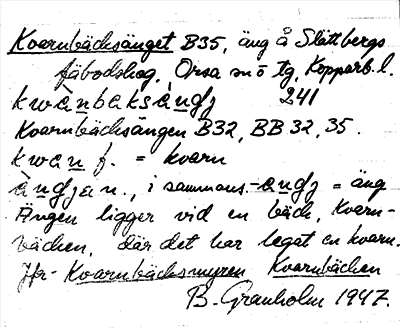 Kvarnbäcksänget B35, äng å Slättbergs
fäbodskog, Orsa sn ö tg, Kopparb. l.
kwànbaksàndʒ 241
Kvarnbäcksängen B32, BB 32, 35.
kwan f. = kvarn
àndʒa n., i sammans. -andʒ = äng
Ängen ligger vid en bäck, Kvarn-
bäcken, där det har legat en kvarn.
Jfr Kvarnbäcksmyren Kvarnbäcken
B. Granholm 1947.